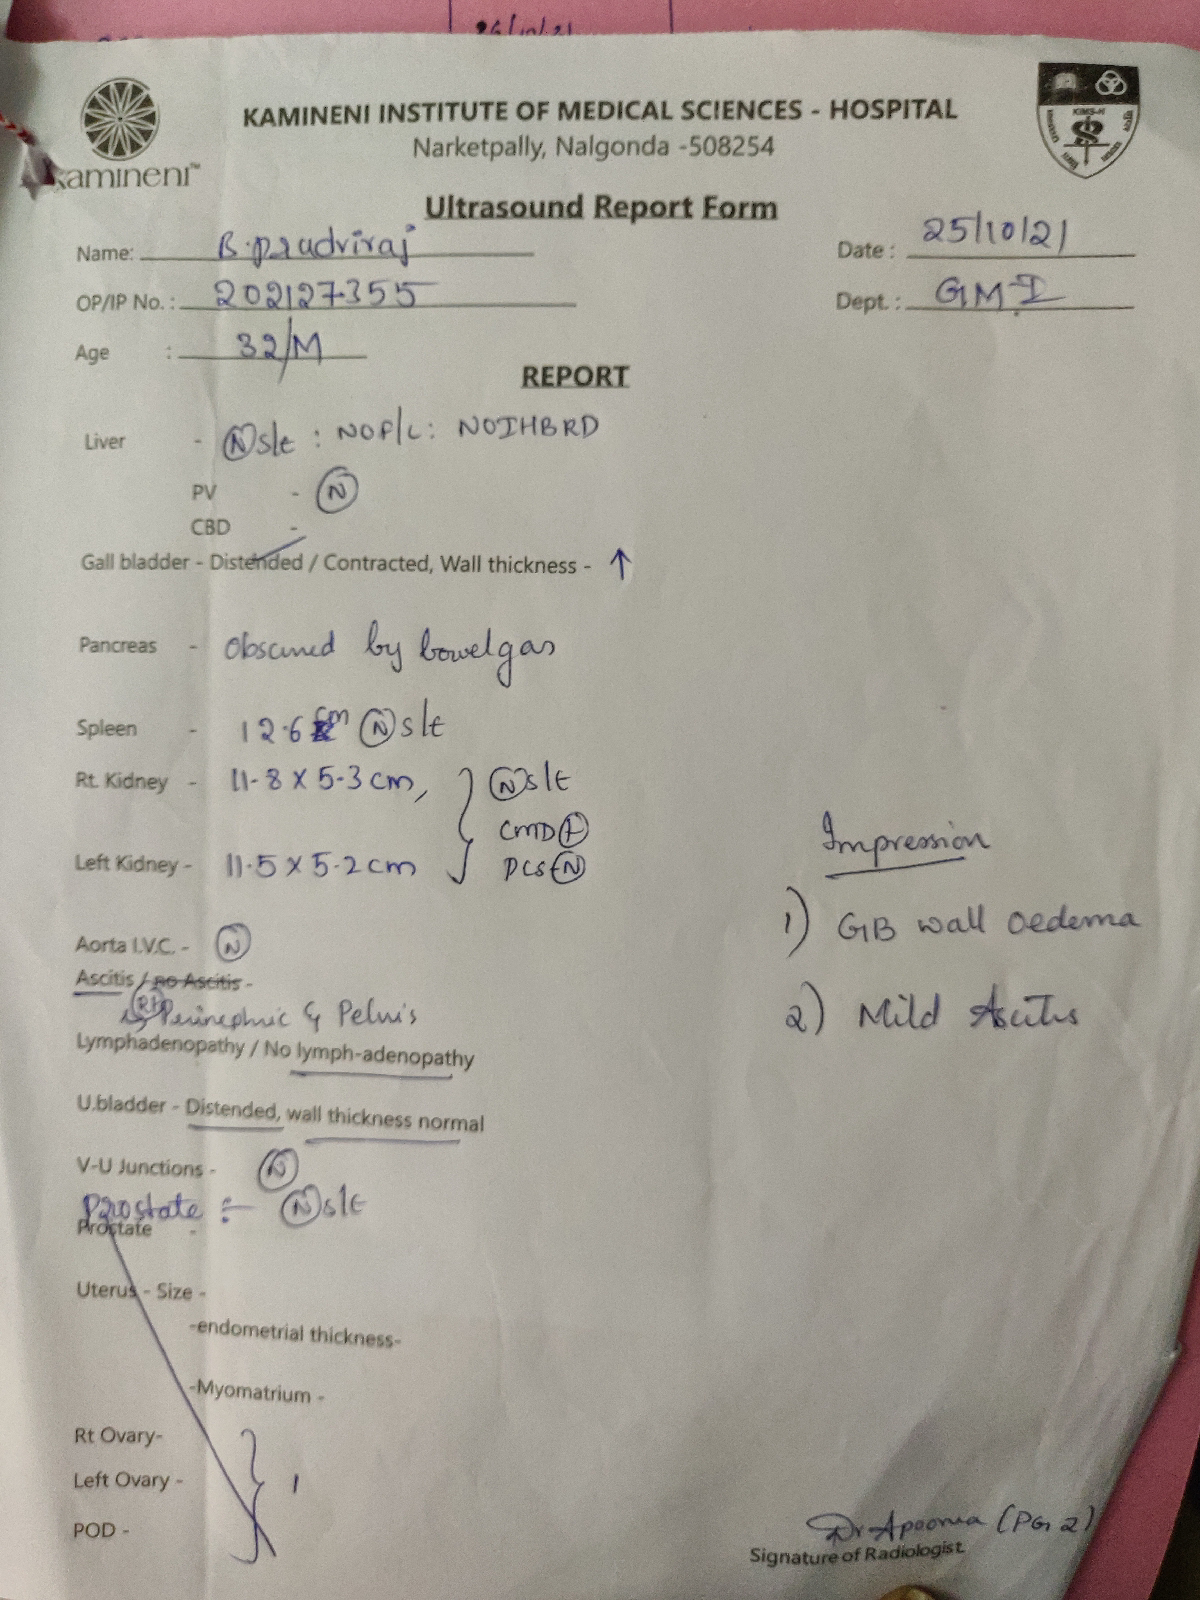 26/10/21
kamineni™
KAMINENI INSTITUTE OF MEDICAL SCIENCES - HOSPITAL
Narketpally, Nalgonda -508254
KIMS-H
Ultrasound Report Form
Name: B. pradviraj
Date : 25/10/21
OP/IP No. : 202127355
Dept. : GM-I
Age : 32/M
REPORT
Liver - (N) s/t : NO F/L : NO IHBRD
PV - (N)
CBD -
Gall bladder - Distended / Contracted, Wall thickness - ↑
Pancreas - Obscured by bowel gas
Spleen - 12.6 cm (N) s/t
Rt. Kidney - 11.8 X 5.3 cm, (N) s/t
CMD (+)
Left Kidney - 11.5 X 5.2 cm PCS (N)
Impression
1) GB wall oedema
2) Mild Ascitis
Aorta I.V.C. - (N)
Ascitis / no Ascitis -
(Rt) Perinephric & Pelvis
Lymphadenopathy / No lymph-adenopathy
U.bladder - Distended, wall thickness normal
V-U Junctions - (N)
Prostate :- (N) s/t
Prostate -
Uterus - Size -
-endometrial thickness-
-Myomatrium -
Rt Ovary-
Left Ovary -
POD -
Dr Apoorva (PG 2)
Signature of Radiologist